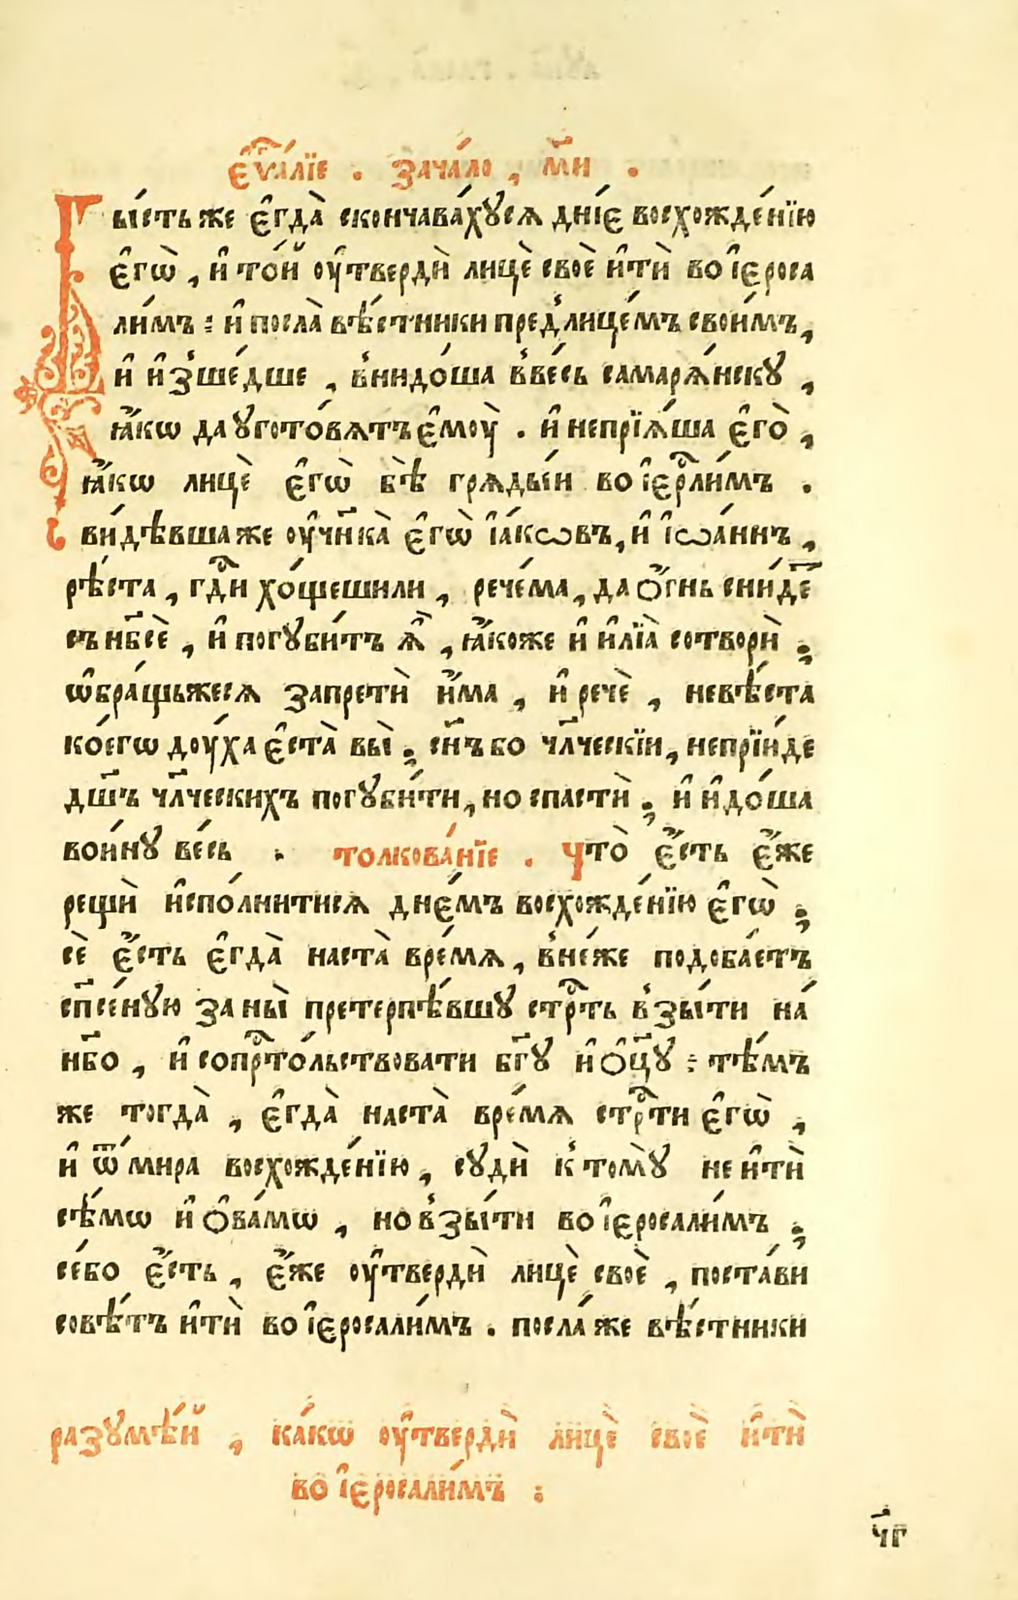 Є҆ѵⷢ҇лїе . Зача́ло , м҃и .
Бы́сть же є҆гда̀ скончава́хꙋсѧ дні́е восхожде́нїю
є҆гѡ̀ , и҆ то́й оу҆твердѝ лицѐ своѐ и҆тѝ во і҆єроса
ли́мъ : и҆ посла̀ вѣ́стники пред̾лице́мъ свои́мъ ,
и҆ и҆з̾ше́дше , в̾нидо́ша в̾ве́сь самарѧ́нскꙋ ,
ꙗ҆́кѡ да ᲂуготовѧ́тъ є҆моу̀ . и҆ непрїѧ́ша є҆го̀ ,
ꙗ҆́кѡ лицѐ є҆гѡ̀ бѣ̀ грѧды́и во і҆єрⷭ҇ли́мъ .
ви́дѣвша же оу҆чн҃ка̀ є҆гѡ̀ і҆а́кѡвъ , и҆ і҆ѡа́ннъ ,
рѣ́ста , гдⷭ҇и хо́щеши ли , рече́ма , да ѻ҆́гнь сни́детⷭ
съ нб҃сѐ , и҆ погꙋби́тъ ѧ҆̀ , ꙗ҆́коже и҆ и҆лїа̀ сотворѝ ;
ѡ҆бра́щьжесѧ запретѝ и҆́ма , и҆ речѐ , невѣ́ста
ко́егѡ доу́ха є҆ста̀ вы̀ ; сн҃ъ бо чл҃ческїи , непрїи́де
дш҃ъ чл҃ческихъ погꙋби́ти , но спастѝ ; и҆ и҆до́ша
вои́нꙋ ве́сь . Толкова́нїе . Что̀ є҆́сть є҆́же
рещѝ и҆спо́лнитисѧ дне́мъ восхожде́нїю є҆гѡ̀ ;
сѐ є҆́сть є҆гда̀ наста̀ вре́мѧ , в̾не́же подоба́етъ
сп҃се́нꙋю за ны̀ претерпѣ́вшꙋ стрⷭ҇ть в̾зы́ти на́
нб҃о , и҆ сопрⷭ҇то́льствовати бг҃ꙋ и҆ ѻ҆ц҃ꙋ : тѣ́мъ
же тогда̀ , є҆гда̀ наста̀ вре́мѧ стрⷭ҇ти є҆гѡ̀ ,
и҆ ѿ ми́ра восхожде́нїю , сꙋдѝ к̾ томꙋ̀ не и҆тѝ
сѣ́мѡ и҆ ѻ҆ва́мѡ , но в̾зы́ти во і҆єросали́мъ ;
се́бо є҆́сть , є҆́же оу҆твердѝ лицѐ своѐ , поста́ви
совѣ́тъ и҆тѝ во і҆єросали́мъ . посла́ же вѣ́стники
разꙋмѣ́й , ка́кѡ оу҆твердѝ лицѐ своѐ и҆тѝ
во і҆єросали́мъ :
ч҃г